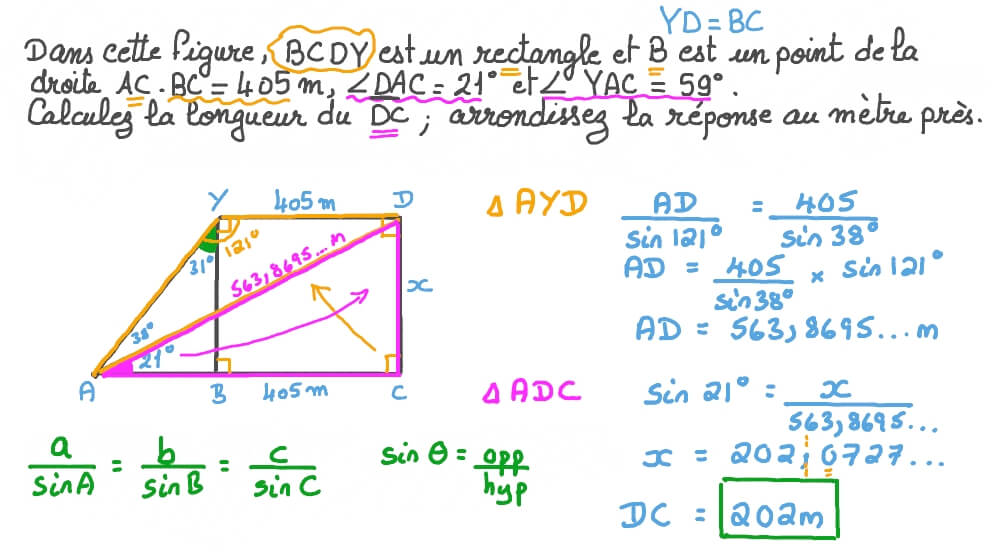 YD = BC
Dans cette figure, BCDY est un rectangle et B est un point de la
droite AC. BC = 405 m, ∠DAC = 21° et ∠YAC = 59°.
Calculez la longueur du DC ; arrondissez la réponse au mètre près.
Y 405 m D
121°
31°
563,8695... m
x
38°
21°
A B 405 m C
Δ AYD
AD / sin 121° = 405 / sin 38°
AD = 405 / sin 38° × sin 121°
AD = 563,8695... m
Δ ADC
sin 21° = x / 563,8695...
x = 202,0727...
DC = 202 m
a / sin A = b / sin B = c / sin C
sin θ = opp / hyp